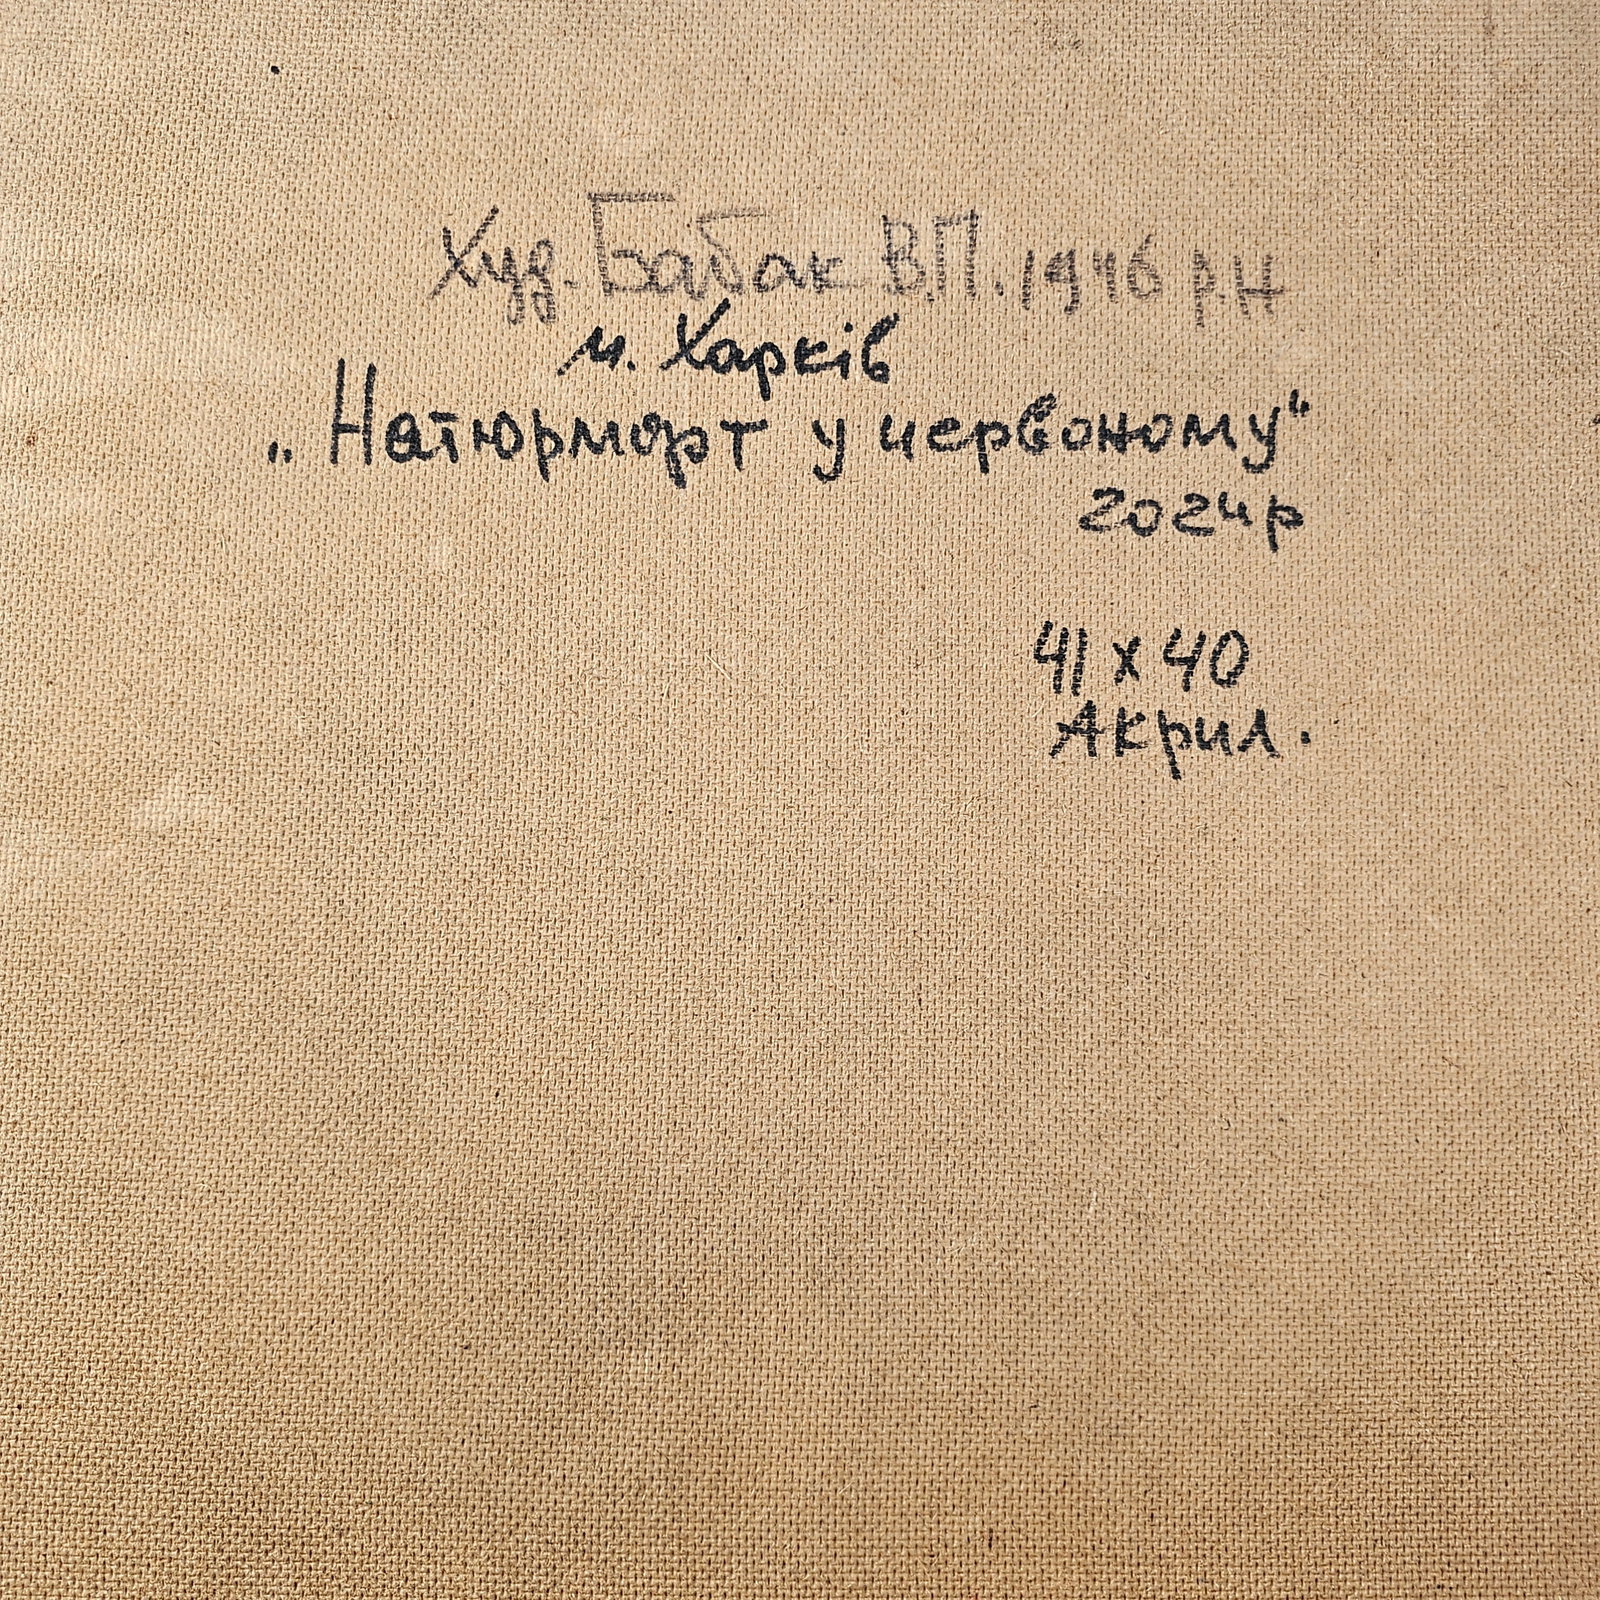 Худ. Бабак В.П. 1946 р.н
м. Харків
„Натюрморт у червоному“
2024р
41 х 40
Акрил.